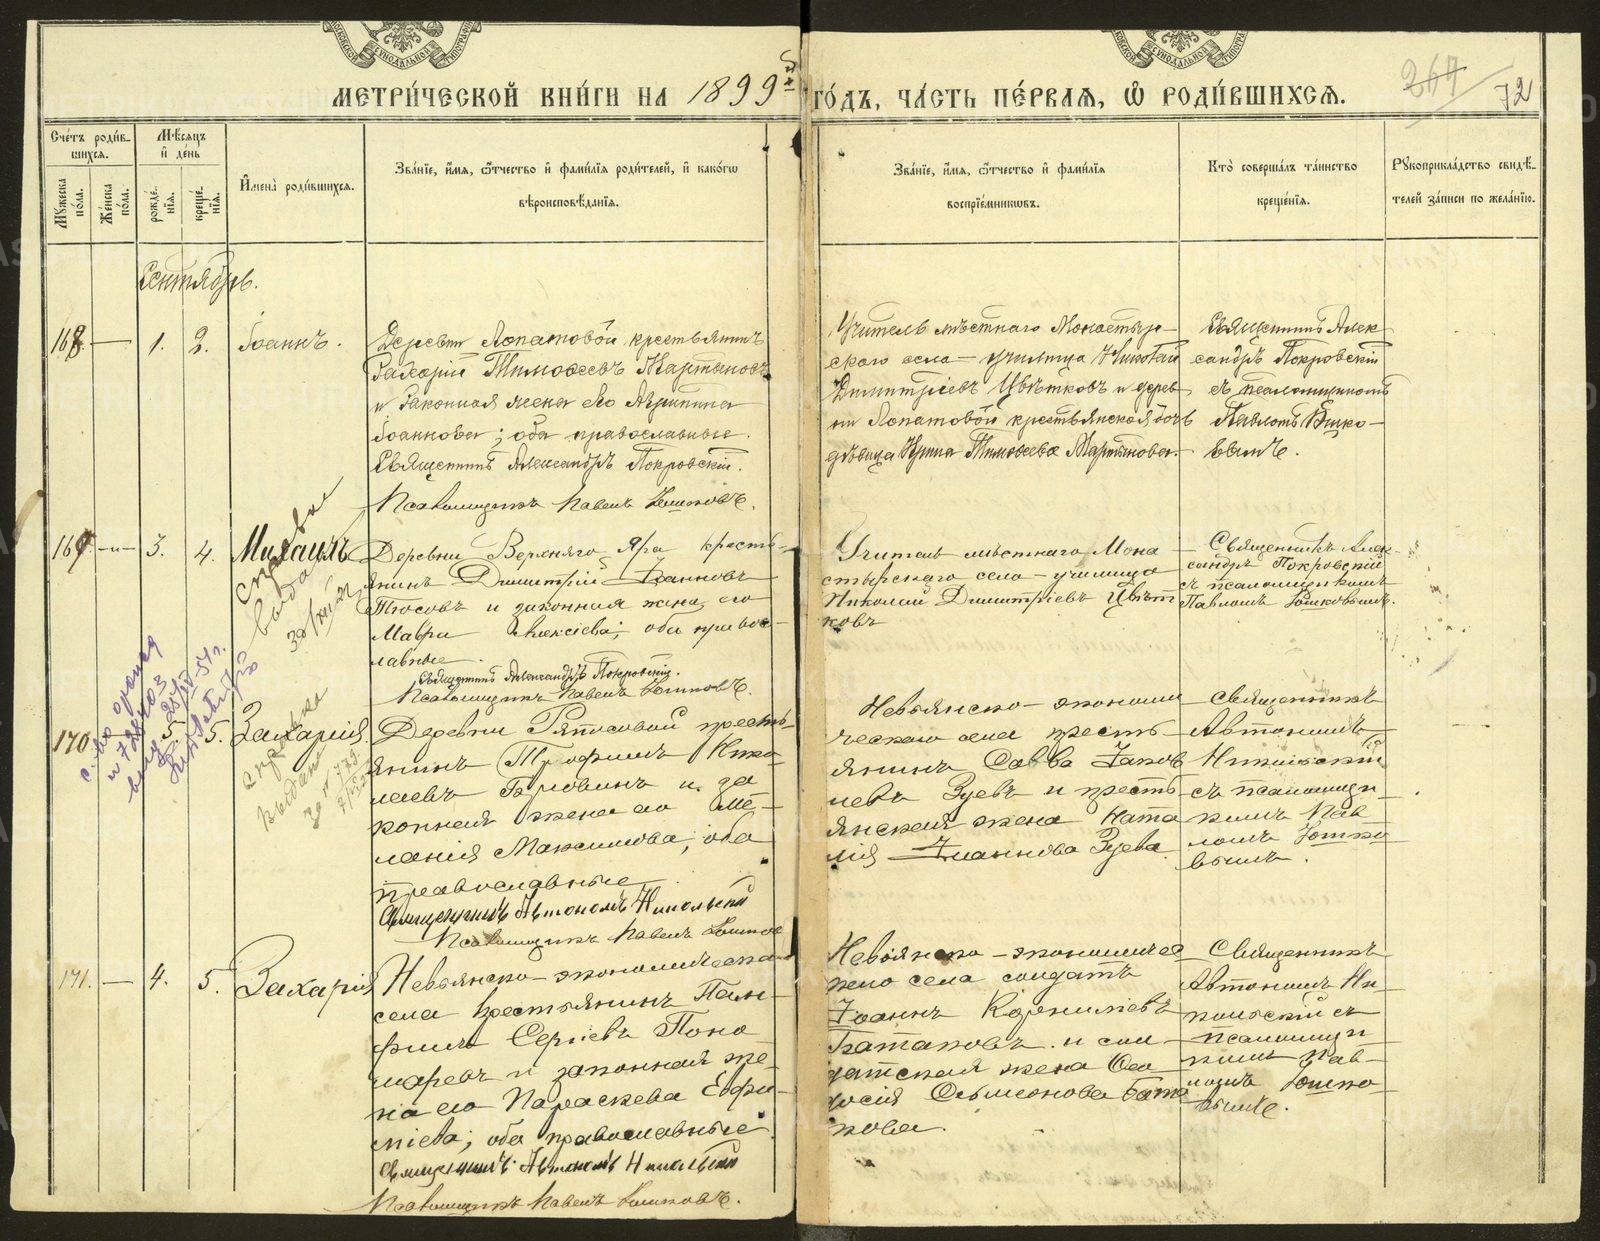 МЕТРИ́ЧЕСКОЙ КНИ́ГИ НА 1899й
ГО́ДЪ, ЧА́СТЬ ПЕ́РВАЯ, Ѡ РОДИ́ВШИХСЯ.
267
72
Сче́тъ роди́в-
шихся.
Мꙋ́жеска по́ла.
Же́нска по́ла.
Мѣ́сяцъ и де́нь
рожде́нїя.
креще́нїя.
Имена̀ роди́вшихся.
Зва́нїе, и́мя, ѻ́тчество и фами́лїя роди́телей, и како́гѡ
вѣроисповѣ́данїя.
Зва́нїе, и́мя, ѻ́тчество и фами́лїя
воспрїе́мникѡвъ.
Кто̀ соверша́лъ та́инство
креще́нїя.
Рꙋкоприкла́дство свидѣ́-
телей за́писи по жела́нїю.
Сентябрь.
168. — 1. 2. Іоаннъ.
Деревни Лопатовой крестьянинъ
Захарій Тимоѳеевъ Мартыновъ
и законная жена его Агриппина
Іоаннова; оба православные.
Священникъ Александръ Покровскій.
Псаломщикъ Павелъ Юшковъ.
Учитель мѣстнаго Монастыр-
скаго села — училища Николай
Димитріевъ Цвѣтковъ и дерев-
ни Лопатовой крестьянская дочь
дѣвица Ирина Тимоѳеева Мартынова.
Священникъ Алек-
сандръ Покровскій
съ псаломщикомъ
Павломъ Юшко-
вымъ.
169. — 3. 4. Михаилъ
справка
выдана
Деревни Верхняго Яра кресть-
янинъ Димитрій Іоанновъ
Тюсовъ и законная жена его
Мавра Алексіева; оба правос-
лавные.
Священникъ Александръ Покровскій.
Псаломщикъ Павелъ Юшковъ.
Учитель мѣстнаго Мона-
стырскаго села — училища
Николай Димитріевъ Цвѣт-
ковъ
Священникъ Алек-
сандръ Покровскій
съ псаломщикомъ
Павломъ Юшковымъ.
170 5. Захарія.
справка
выдана
Деревни Ряпосовой кресть-
янинъ Трофимъ Нико-
лаевъ Бровинъ и за-
конная жена его Ме-
ланія Максимова; оба
православные
Священникъ Автономъ Никольскій
Псаломщикъ Павелъ Юшков
Невьянско-экономи
ческаго села кресть-
янинъ Савва Іаков
левъ Зуевъ и кресть-
янская жена Ната
лія Іоаннова Зуева.
Священникъ
Автономъ
Никольскій
съ псаломщи-
комъ Пав-
ломъ Юшко
вымъ.
171. — 4. 5. Захарія
Невьянско-экономическа-
села крестьянинъ Пам-
филъ Сергіевъ Поно
маревъ и законная же-
на его Параскева Ефи-
міева; оба православные.
Священникъ Автономъ Никольскій
Псаломщикъ Павелъ Юшковъ.
Невьянско-экономичес
каго села солдатъ
Іоаннъ Корниліевъ
Батаковъ и сол-
датская жена Ѳео
досія Симеонова Бата
кова.
Священникъ
Автономъ Ни-
кольскій съ
псаломщи
комъ Пав-
ломъ Юшко-
вымъ.